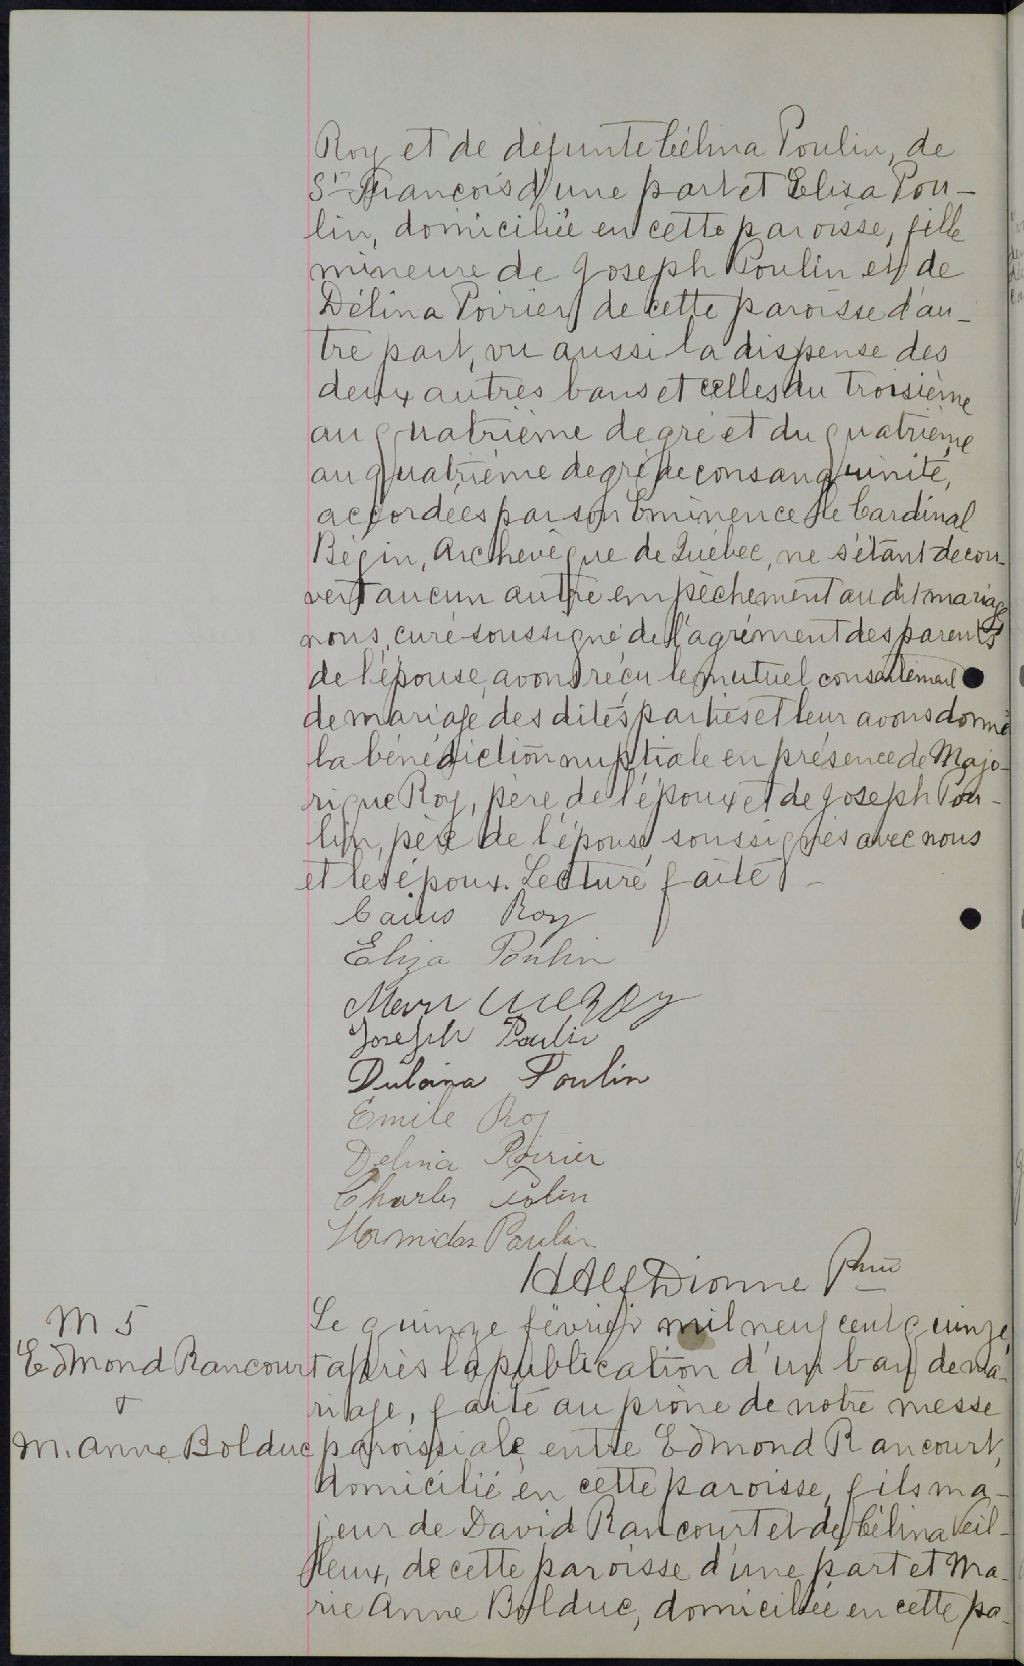 Roy et de défunte Célina Poulin, de
St François d'une part et Eliza Pou-
lin, domiciliée en cette paroisse, fille
mineure de Joseph Poulin et de
Délina Poirier de cette paroisse d'au-
tre part, vu aussi la dispense des
deux autres bans et celles du troisième
au quatrième degré et du quatrième
au quatrième degré de consanguinité,
accordées par son Eminence le Cardinal
Bégin, Archevêque de Québec, ne s'étant décou-
vert aucun autre empêchement au dit mariage,
nous, curé soussigné de l'agrément des parents
de l'épouse, avons reçu le mutuel consentement
de mariage des dites parties et leur avons donné
la bénédiction nuptiale en présence de Majo-
rique Roy, père de l'époux et de Joseph Pou-
lin, père de l'épouse soussignés avec nous
et les époux. Lecture faite -
Caius Roy
Eliza Poulin
Joseph Poulin
Poulin
Emile Roy
Delina Poirier
Charles Polin
Hormidas Poulin
HAlfDionne Ptre
M 5
Edmond Rancourt
&
M. Anne Bolduc
Le quinze février mil neuf cent quinze,
après la publication d'un ban de ma-
riage, faite au prône de notre messe
paroissiale, entre Edmond Rancourt,
domicilié en cette paroisse, fils ma-
jeur de David Rancourt et de Célina Veil-
leux, de cette paroisse d'une part et Ma-
rie Anne Bolduc, domiciliée en cette pa-